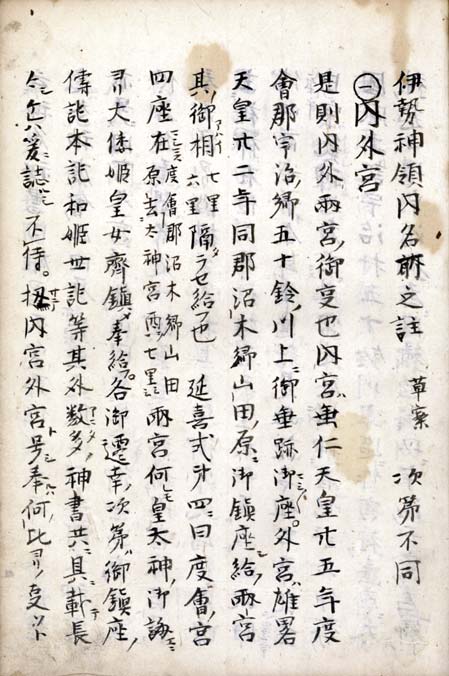 伊勢神領内名所之註 草案 次第不同
㊀内外宮
是則内外両宮ノ御事也内宮ハ垂仁天皇廿五年度
會郡宇治ノ郷五十鈴ノ川上ニ御垂跡御座。外宮ハ雄畧
天皇廿二年同郡沼木郷山田ノ原ニ御鎮座シ給ノ両宮
其ノ御相七里六里隔ラセ給フ也 延喜式第四ニ曰度會ノ宮
四座在度會郡沼木郷山田原去太神宮西七里ニ両宮何モ皇太神ノ御誨ニ
ヨリ大倭姫皇女齊鎮メ奉給。各御遷幸ノ次第御鎮座ノ
傳記本記和姫世記等其外数多ノ神書共ニ具ニ載テ長
今爰ニ誌ニ不侍。扨内宮外宮ト号シ奉ハ何比ヨリノ支ト